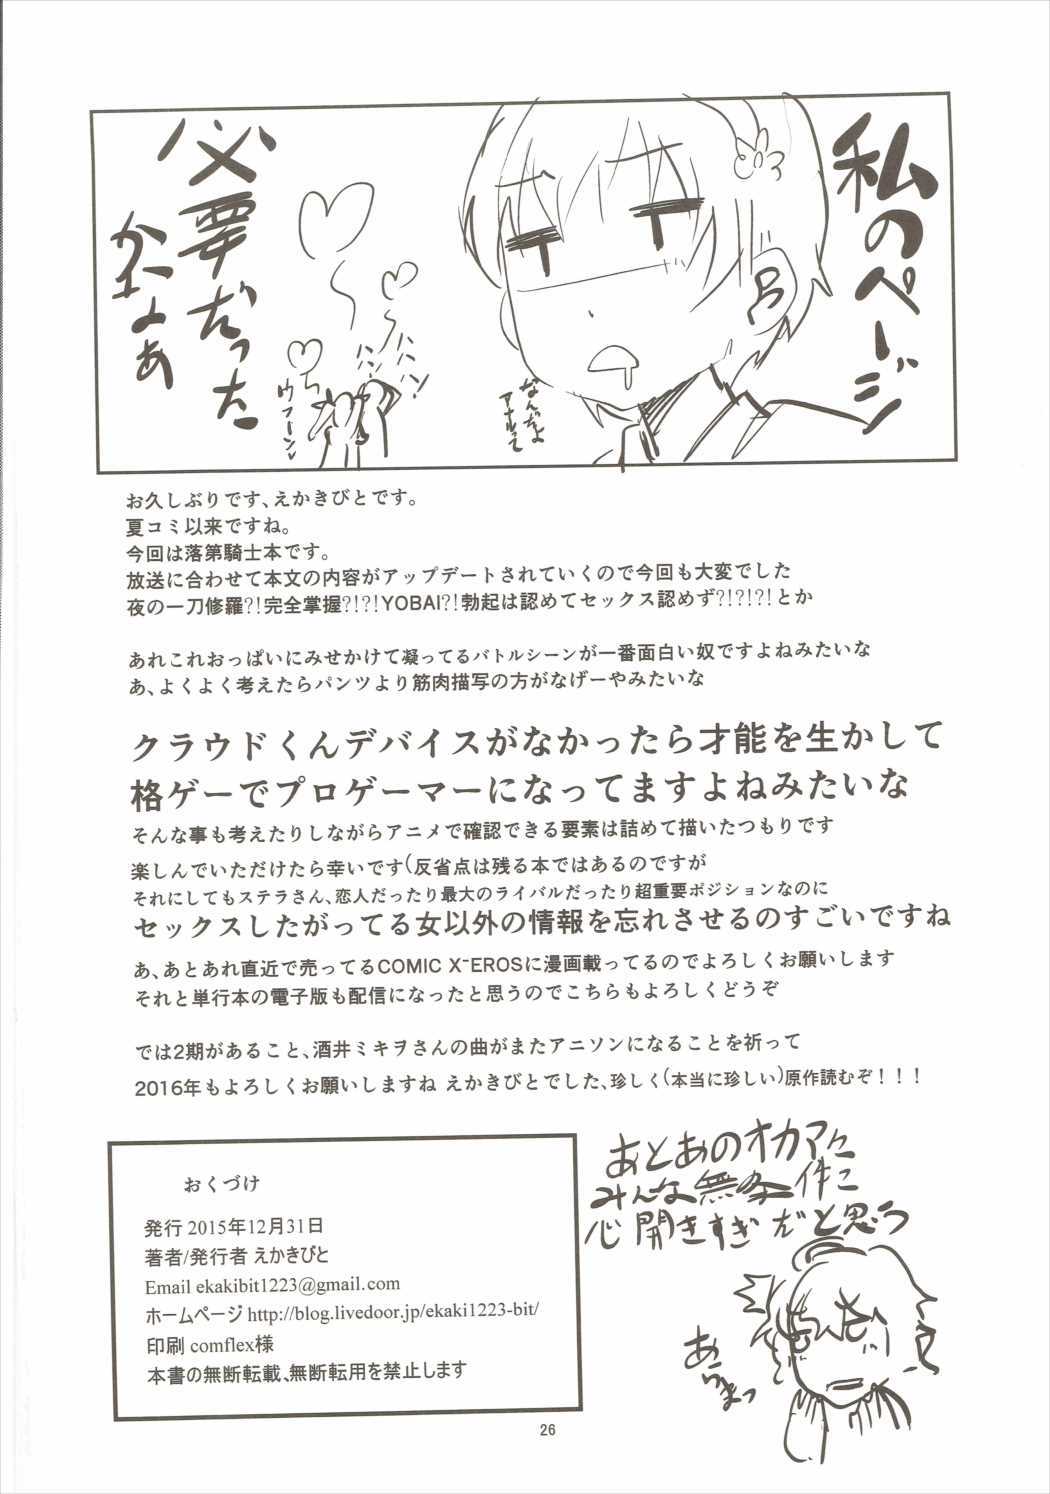 私のページ
必要だった
かなぁ
ハン
ハン
ウフーン
なんだよ
アナルって
お久しぶりです、えかきびとです。
夏コミ以来ですね。
今回は落第騎士本です。
放送に合わせて本文の内容がアップデートされていくので今回も大変でした
夜の一刀修羅?!完全掌握?!?!YOBAI?!勃起は認めてセックス認めず?!?!?!とか
あれこれおっぱいにみせかけて凝ってるバトルシーンが一番面白い奴ですよねみたいな
あ、よくよく考えたらパンツより筋肉描写の方がなげーやみたいな
クラウドくんデバイスがなかったら才能を生かして
格ゲーでプロゲーマーになってますよねみたいな
そんな事も考えたりしながらアニメで確認できる要素は詰めて描いたつもりです
楽しんでいただけたら幸いです(反省点は残る本ではあるのですが
それにしてもステラさん、恋人だったり最大のライバルだったり超重要ポジションなのに
セックスしたがってる女以外の情報を忘れさせるのすごいですね
あ、あとあれ直近で売ってるCOMIC X-EROSに漫画載ってるのでよろしくお願いします
それと単行本の電子版も配信になったと思うのでこちらもよろしくどうぞ
では2期があること、酒井ミキヲさんの曲がまたアニソンになることを祈って
2016年もよろしくお願いしますね えかきびとでした、珍しく(本当に珍しい)原作読むぞ！！！
おくづけ
発行 2015年12月31日
著者/発行者 えかきびと
Email ekakibit1223@gmail.com
ホームページ http://blog.livedoor.jp/ekaki1223-bit/
印刷 comflex様
本書の無断転載、無断転用を禁止します
あとあのオカマに
みんな無条件に
心開きすぎだと思う
あらまっ
26